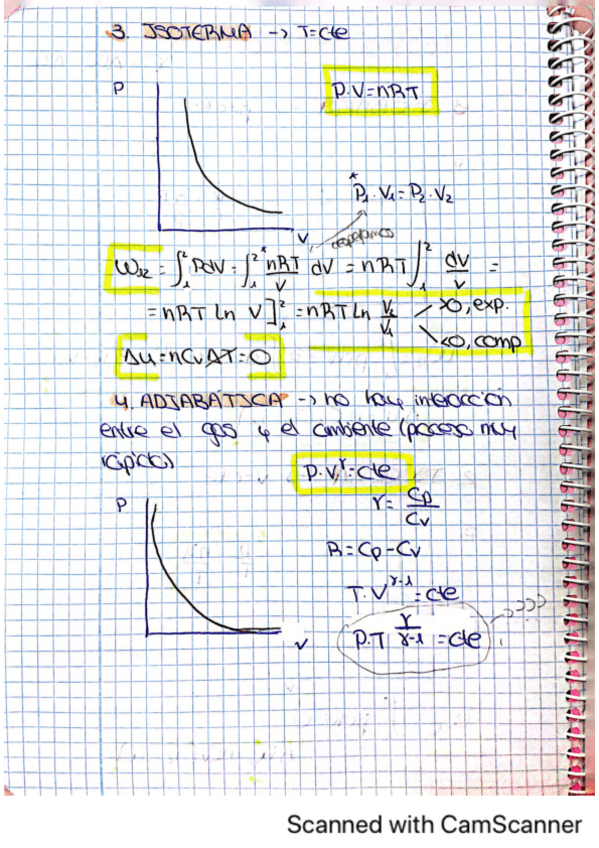 3. ISOTERMA -> T=cte
P
P.V=nRT
* P₁.V₁=P₂.V₂
V
despejamos
W₁₂ = ∫₁² PdV = ∫₁² * nRT/V dV = nRT ∫₁² dV/V =
= nRT ln V]₁² = nRT ln V₂/V₁ >0, exp.
<0, comp
Δu = nCvΔT = 0
4. ADIABÁTICA -> no hay interacción
entre el gas y el ambiente (proceso muy
rápido)
P.V^γ = cte
P
γ = Cp/Cv
R = Cp - Cv
T.V^γ-1 = cte
P.T^γ/γ-1 = cte
V
Scanned with CamScanner